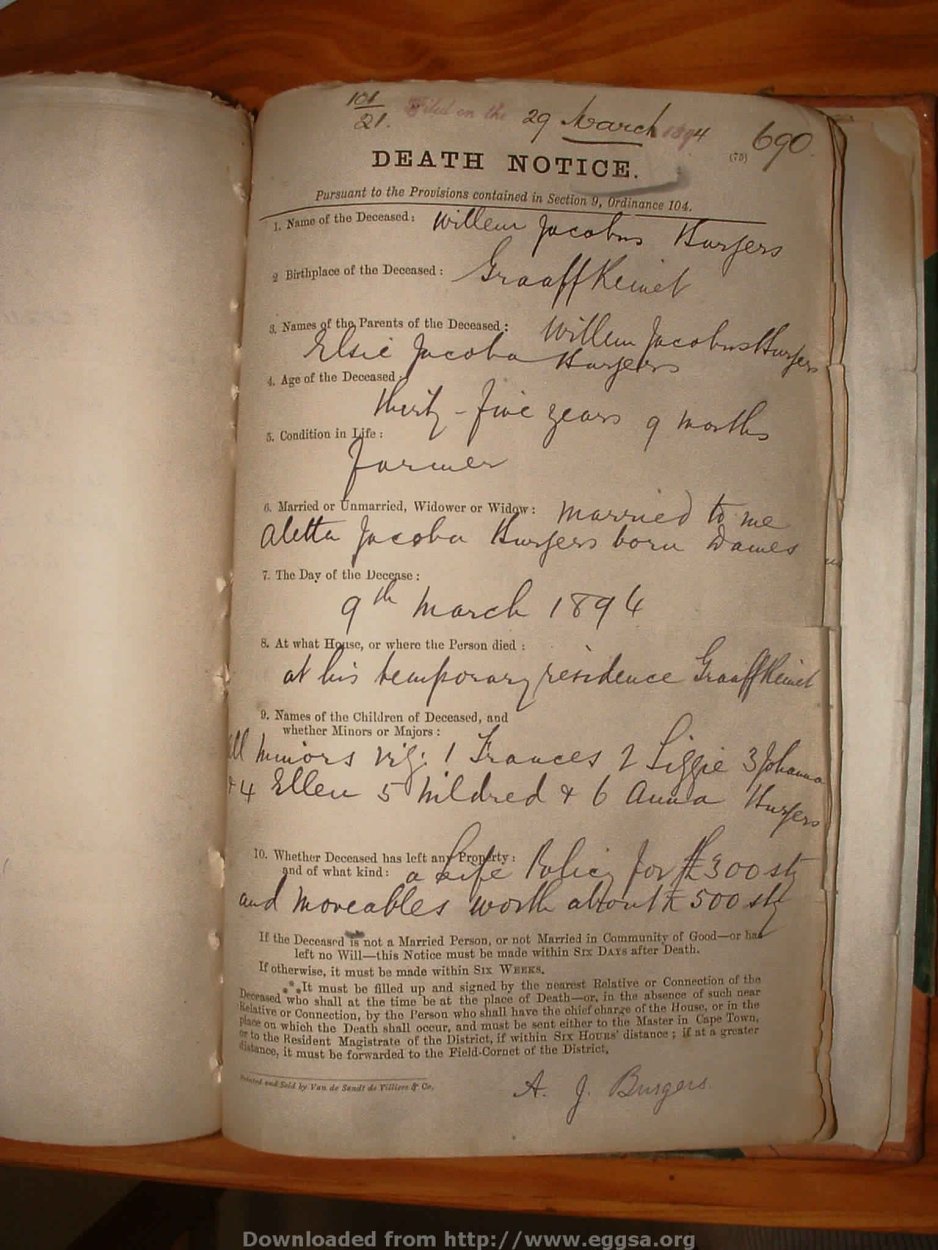 101
21. Filed on the 29 March 1894 690.
(73)
DEATH NOTICE.
Pursuant to the Provisions contained in Section 9, Ordinance 104.
1. Name of the Deceased: Willem Jacobus Burgers
2 Birthplace of the Deceased: Graaff Reinet
3. Names of the Parents of the Deceased: Willem Jacobus Burgers
Elsie Jacoba Burgers
4. Age of the Deceased:
thirty-five years 9 months
5. Condition in Life:
farmer
6. Married or Unmarried, Widower or Widow: married to me
Aletta Jacoba Burgers born
7. The Day of the Decease:
9th March 1894
8. At what House, or where the Person died:
at his temporary residence Graaff Reinet
9. Names of the Children of Deceased, and
whether Minors or Majors:
all minors viz: 1 Frances 2 Lizzie 3 Johanna
& 4 Ellen 5 Mildred & 6 Anna Burgers
10. Whether Deceased has left any Property:
and of what kind: a Life Policy for £300 stg
and moveables worth about £500 stg
If the Deceased is not a Married Person, or not Married in Community of Good—or has
left no Will—this Notice must be made within SIX DAYS after Death.
If otherwise, it must be made within SIX WEEKS.
*** It must be filled up and signed by the nearest Relative or Connection of the
Deceased who shall at the time be at the place of Death—or, in the absence of such near
Relative or Connection, by the Person who shall have the chief charge of the House, or in the
place on which the Death shall occur, and must be sent either to the Master in Cape Town,
or to the Resident Magistrate of the District, if within SIX HOURS' distance; if at a greater
distance, it must be forwarded to the Field-Cornet of the District,
Printed and Sold by Van de Sandt de Villiers & Co.
A. J. Burgers
Downloaded from http://www.eggsa.org